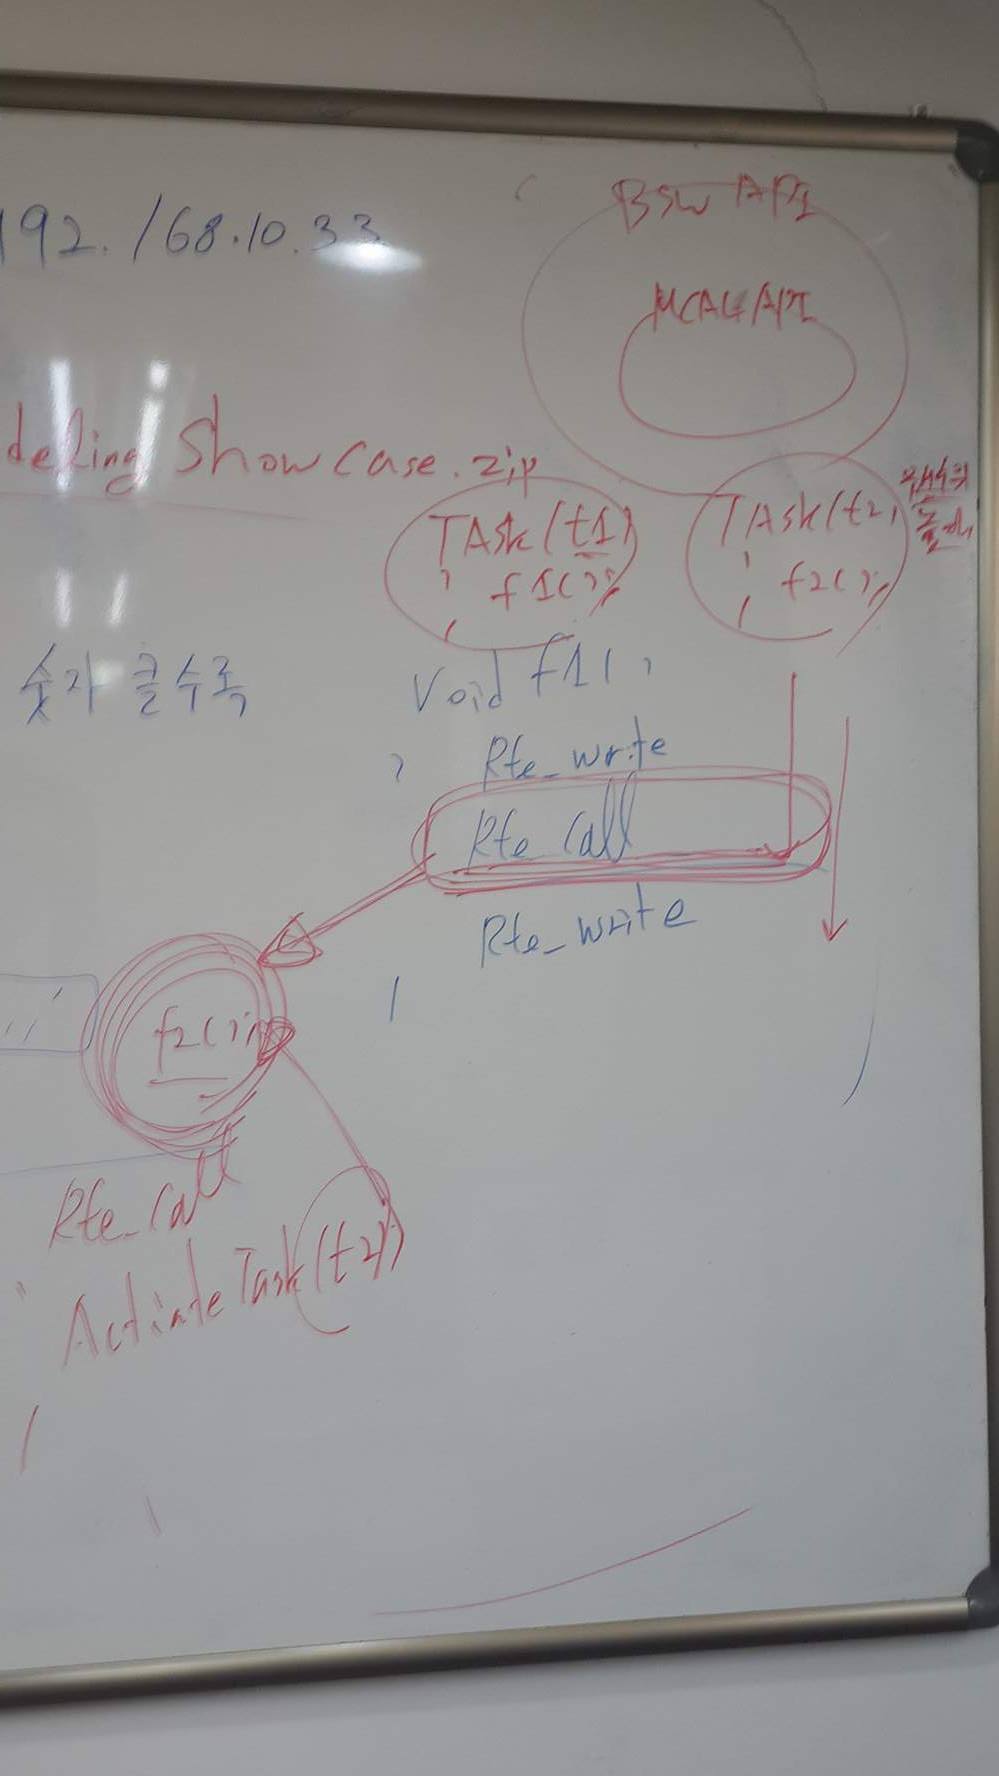 192.168.10.33
BSW API
MCAL API
deling Showcase.zip
TASK(t1)
{ f1();
}
TASK(t2)
{ f2();
}
숫자 클수록
Void f1()
{ Rte_write
Rte_Call
Rte_write
}
f2();
Rte_Call
{ ActivateTask(t2)
}